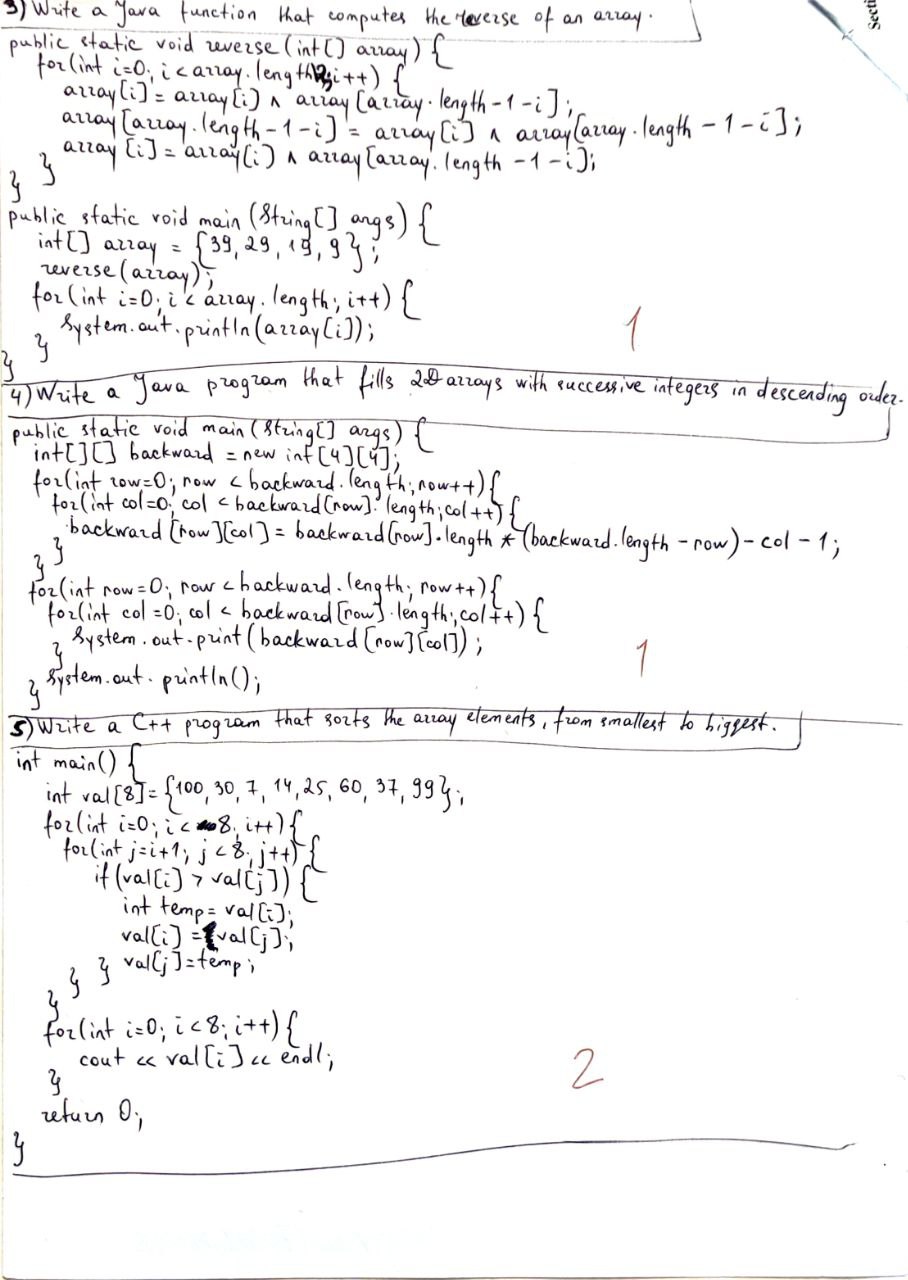 3) Write a Java function that computes the reverse of an array.
Secti
public static void reverse (int[] array) {
for(int i=0; i<array.length; i++) {
array[i] = array[i] ^ array[array.length-1-i];
array[array.length-1-i] = array[i] ^ array[array.length-1-i];
array[i] = array[i] ^ array[array.length-1-i];
}
}
public static void main (String[] args) {
int[] array = {39, 29, 19, 9};
reverse(array);
for(int i=0; i<array.length; i++) {
System.out.println(array[i]);
}
}
1
4) Write a Java program that fills 2D arrays with successive integers in descending order.
public static void main (String[] args) {
int[][] backward = new int[4][4];
for(int row=0; row < backward.length; row++){
for(int col=0; col < backward[row].length; col++){
backward[row][col] = backward[row].length * (backward.length - row) - col - 1;
}
}
for(int row=0; row < backward.length; row++){
for(int col=0; col < backward[row].length; col++) {
System.out.print(backward[row][col]);
}
System.out.println();
}
1
5) Write a C++ program that sorts the array elements, from smallest to biggest.
int main() {
int val[8] = {100, 30, 7, 14, 25, 60, 37, 99};
for(int i=0; i<8; i++){
for(int j=i+1; j<8; j++) {
if (val[i] > val[j]) {
int temp = val[i];
val[i] = val[j];
} } val[j]=temp;
}
for(int i=0; i<8; i++){
cout << val[i] << endl;
}
2
return 0;
}